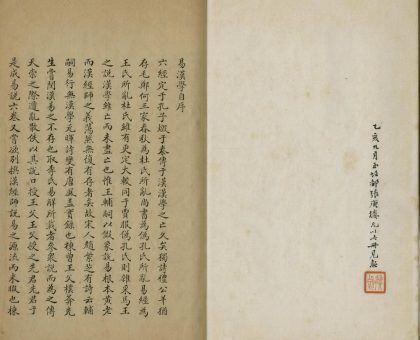 乙亥九月
易漢學自序
六經定于孔子燬于秦傳于漢漢學之亡久矣獨詩禮公羊猶
存毛鄭何三家春秋為杜氏所亂尚書為偽孔氏所亂易經為
王氏所亂杜氏雖有更定大較同于賈服偽孔氏則雜采馬王
之說漢學雖亡而未盡亡也惟王輔嗣以假象說易根本黃老
而漢經師之義蕩然無復有存者矣故宋人趙紫芝有詩云輔
嗣易行無漢學元暉詩變有唐風蓋實錄也棟曾王父樸菴先
生嘗閔漢易之不存也取李氏易解所載者參衆說而為之傳
天崇之際遭亂散佚以其說口授王父王父授之先君先君于
是成易說六卷又嘗欲別撰漢經師說易之源流而未暇也棟